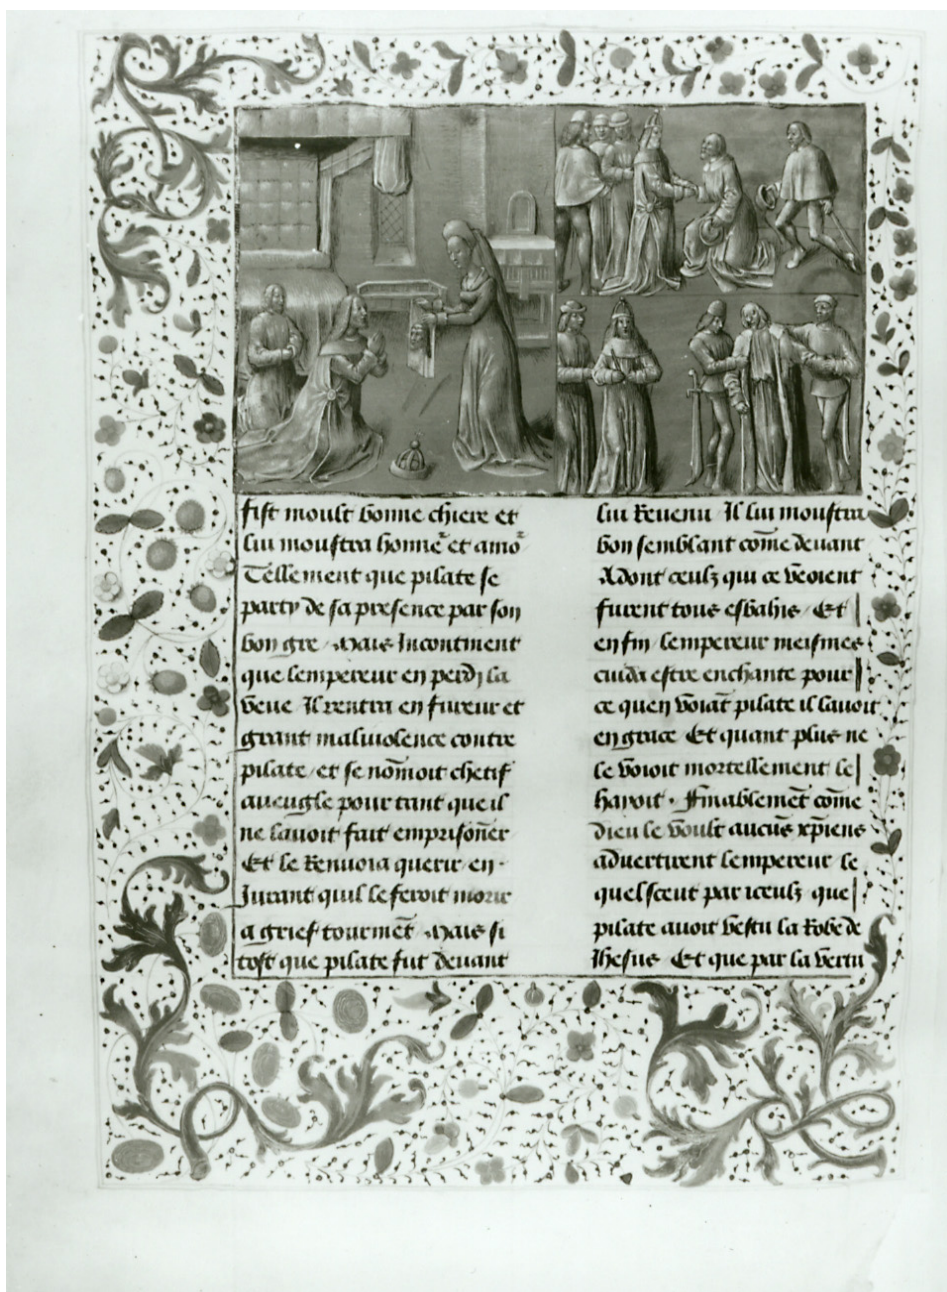 fist moult bonne chiere et
lui moustra honne᷑ et amo᷑
Tellement que pilate se
party de sa presence par son
bon gre / Mais Incontinent
que lempereur en perdj la
veue Il rentra en fureur et
grant maliuolence contre
pilate / et se nōmoit chetif
aueugle pour tant que il
ne lauoit fait emprisoñer
Et le Renuoia querir en
Jurant quil le feroit morir
a grief tourmēt Mais si
tost que pilate fut deuant
lui Reuenu Il lui moustra
bon semblant cōme deuant
Adont ceulz qui ce veoient
furent tous esbahis / Et
en fin lempereur meismes
cuida estre enchante pour
ce quen voiāt pilate il lauoit
en grace Et quant plus ne
le voioit mortellement le
haioit · Finablemēt cōme
dieu le voult aucūs xp̄iens
aduertirent lempereur le
quel sceut par iceulz que
pilate auoit vestu la Robe de
Ihesus Et que par la vertu